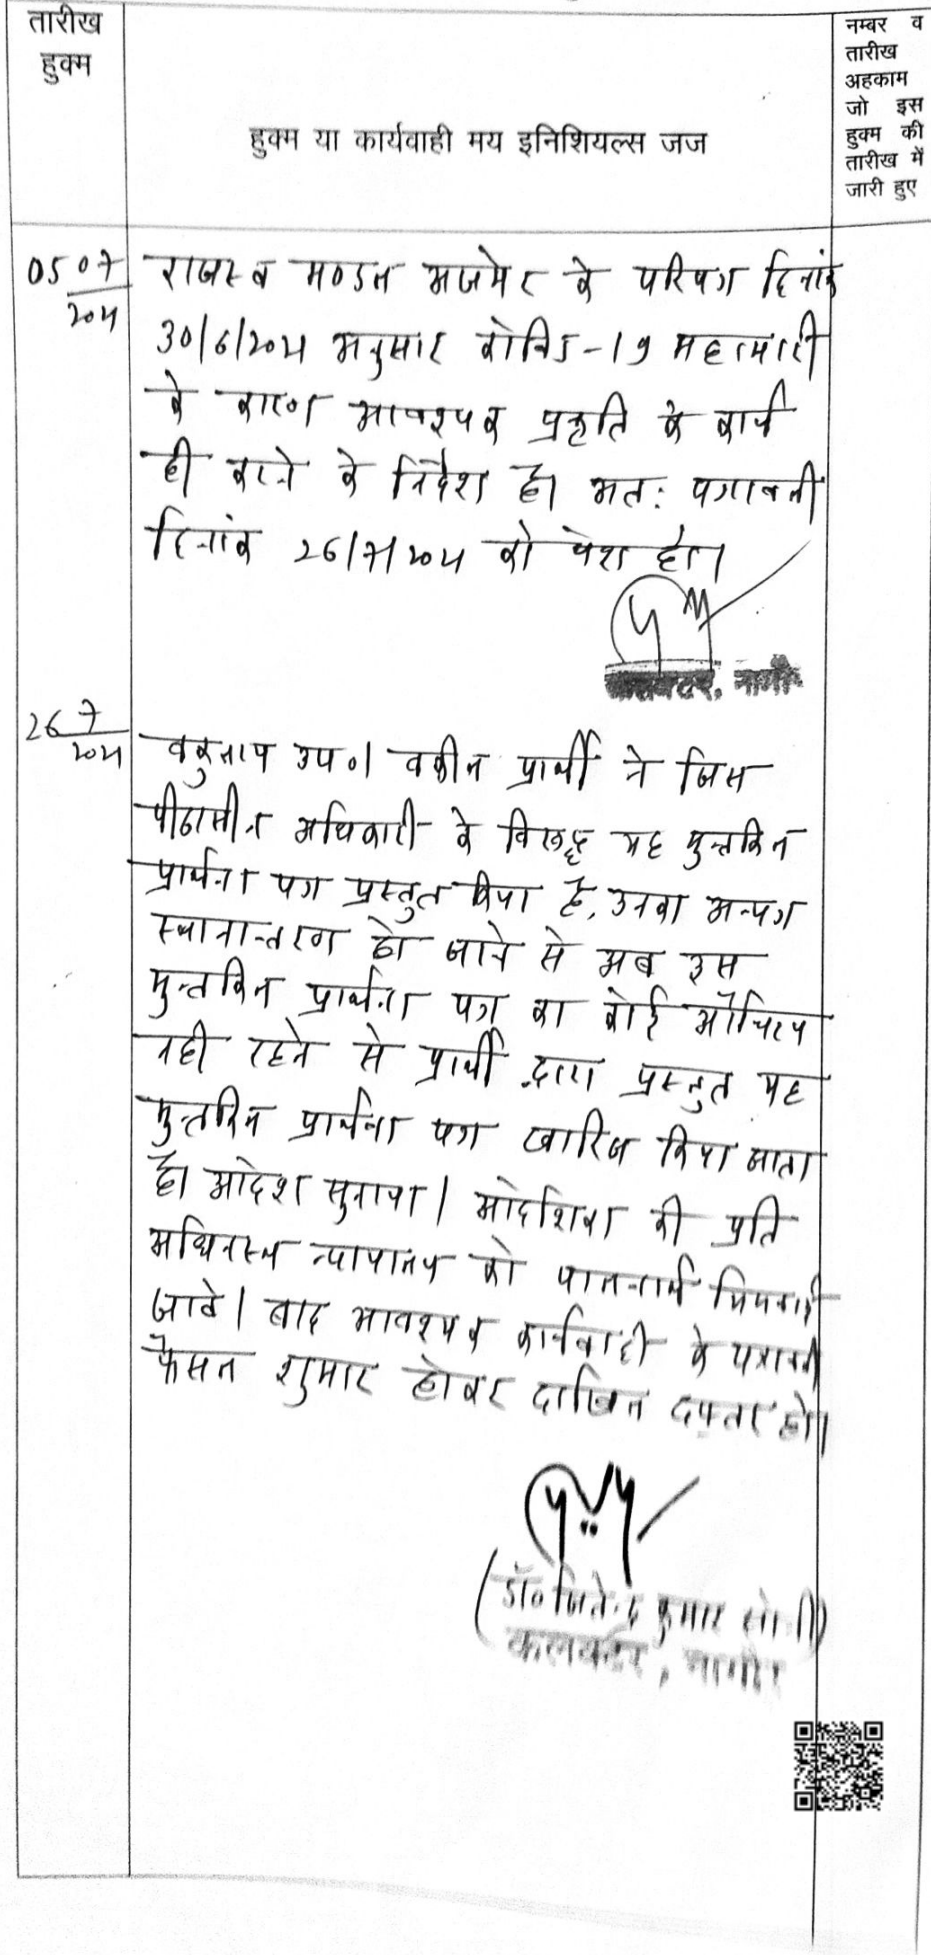 तारीख
हुक्म
हुक्म या कार्यवाही मय इनिशियल्स जज
नम्बर व
तारीख
अहकाम
जो इस
हुक्म की
तारीख में
जारी हुए
05 07
2021
राजस्व मण्डल अजमेर के परिपत्र दिनांक
30/6/2021 अनुसार कोविड-19 महामारी
के कारण आवश्यक प्रकृति के कार्य
ही करने के निर्देश है। अतः पत्रावली
दिनांक 26/7/2021 को पेश हो।
कलक्टर, नागौर
26 7
2021
वकुलाय उप०। वकील प्रार्थी ने जिस
पीठासीन अधिकारी के विरूद्ध यह मुन्तकिल
प्रार्थना पत्र प्रस्तुत किया है, उनका अन्यत्र
स्थानान्तरण हो जाने से अब इस
मुन्तकिल प्रार्थना पत्र का कोई औचित्य
नही रहने से प्रार्थी द्वारा प्रस्तुत यह
मुन्तकिल प्रार्थना पत्र खारिज किया जाता
है। आदेश सुनाया। आदेशिका की प्रति
अधिनस्थ न्यायालय को पालनार्थ भिजवाई
जावे। बाद आवश्यक कार्यवाही के पत्रावली
फैसल शुमार होकर दाखिल दफ्तर हो।
(डॉ० जितेन्द्र कुमार सोनी)
कलक्टर, नागौर